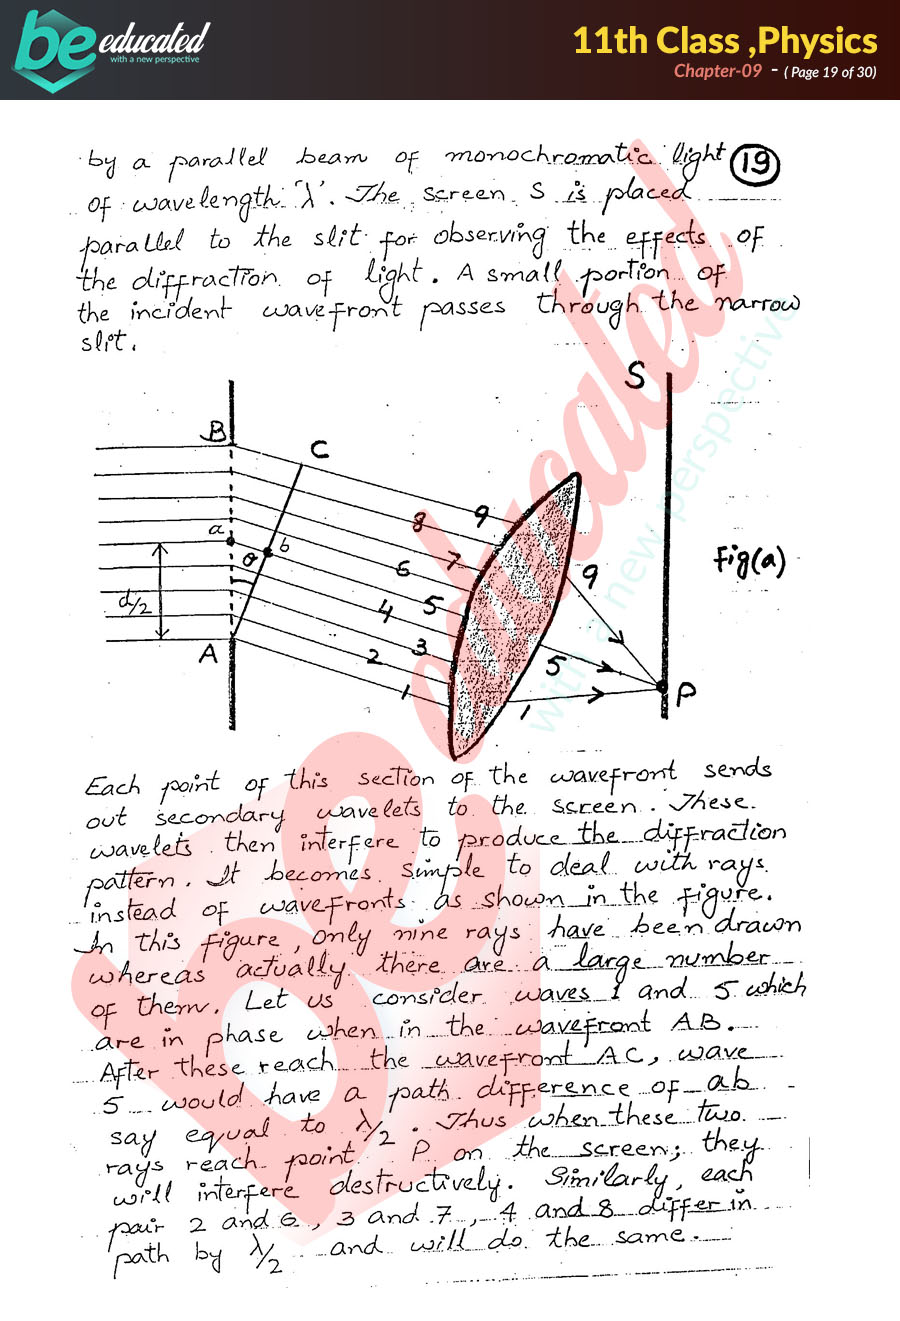 be educated
with a new perspective
11th Class ,Physics
Chapter-09 - ( Page 19 of 30)
by a parallel beam of monochromatic light
19
of wavelength 'λ'. The screen S is placed
parallel to the slit for observing the effects of
the diffraction of light. A small portion of
the incident wavefront passes through the narrow
slit.
S
B
C
8 9
a
b
7
θ
6
Fig(a)
9
d/2
4 5
A
2 3
5
1
1
P
Each point of this section of the wavefront sends
out secondary wavelets to the screen. These
wavelets then interfere to produce the diffraction
pattern. It becomes simple to deal with rays
instead of wavefronts as shown in the figure.
In this figure, only nine rays have been drawn
whereas actually there are a large number
of them. Let us consider waves 1 and 5 which
are in phase when in the wavefront AB.
After these reach the wavefront AC, wave
5 would have a path difference of ab
say equal to λ/2. Thus when these two
rays reach point P on the screen; they
will interfere destructively. Similarly, each
pair 2 and 6, 3 and 7, 4 and 8 differ in
path by λ/2 and will do the same.
be educated
with a new perspective